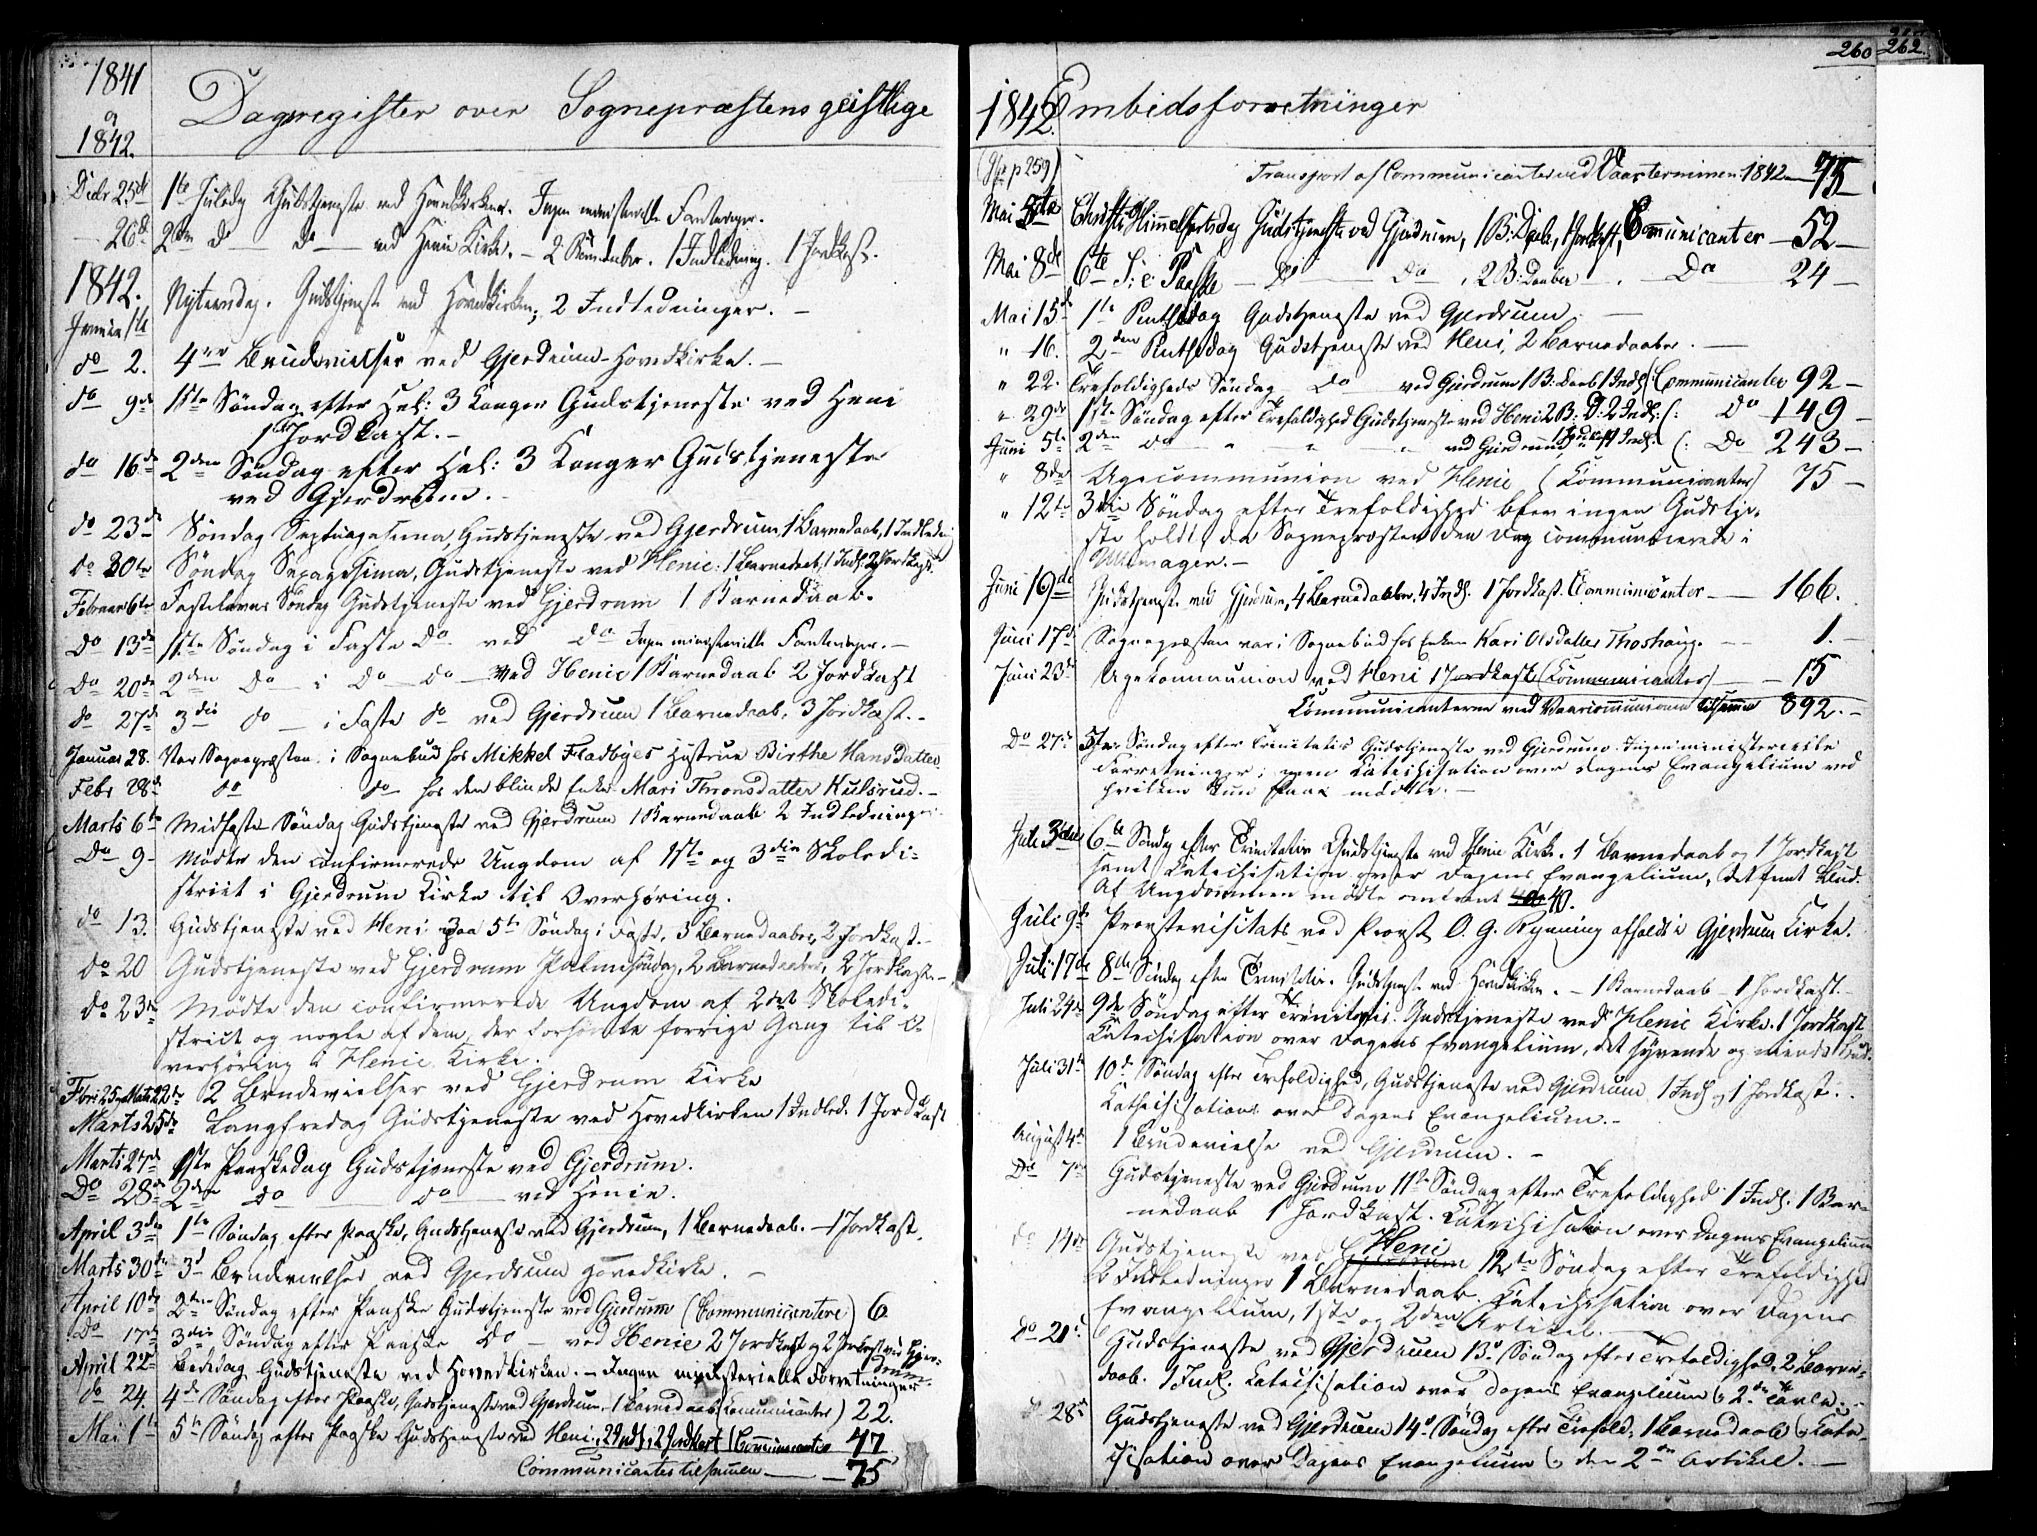 1841
og
1842.
Dagsregister over Sognepræstens geistlige
Decbr 25de 1te Juledag Gudstjeneste ved Hovedkirken. Ingen ministerielle Forretninger.
26de 2den do do ved Henie Kirke. – 2 Barnedaaber. 1 Indledning. 1 Jordkast.
1842.
Januar 1te Nytaarsdag. Gudstjeneste ved Hovedkirken; 2 Indledninger. –
do 2. 4re Brudevielser ved Gjerdrum Hovedkirke. –
do 9de 1ste Søndag efter Hel: 3 Konger Gudstjeneste ved Heni
1 Jordkast. –
do 16de 2den Søndag efter Hel: 3 Konger Gudstjeneste
ved Gjerdrum. –
do 23de Søndag Septuagesima, Gudstjeneste ved Gjerdrum, 1 Barnedaab, 1 Indledn
do 30te Søndag Sexagesima, Gudstjeneste ved Henie: 1 Barnedaab, 1 Indl. 2 Jordkast.
Februar 6te Fastelavns Søndag Gudstjeneste ved Gjerdrum 1 Barnedaab.
Do 13de 1ste Søndag i Faste Do ved do Ingen ministerielle Forretninger. –
Do 20de 2den Do i Do Do ved Henie 1 Barnedaab 2 Jordkast
do 27de 3die do i Faste do ved Gjerdrum 1 Barnedaab, 3 Jordkast. –
Januar 28. Var Sognepræsten i Sognebud hos Mikkel Fladbyes Hustrue Birthe Hansdatter.
Febr 28de do do hos den blinde Enke Mari Thronsdatter Kulsrud. –
Marts 6te Midfaste Søndag Gudstjeneste ved Gjerdrum 1 Barnedaab 2 Indledninger
Do 9 Mødte den confirmerede Ungdom af 1ste og 3die Skoledi-
strict i Gjerdrum Kirke til Overhøring.
do 13. Gudstjeneste ved Heni paa 5te Søndag i Faste, 3 Barnedaaber, 2 Jordkast. –
do 20 Gudstjeneste ved Gjerdrum Palmesøndag, 2 Barnedaaber, 2 Jordkast. –
do 23de Mødte den confirmerede Ungdom af 2det Skoledi-
strict og nogle af dem, der forsømte forrige Gang til O-
verhøring i Henie Kirke.
Fbr: 25 Marts 22de 2 Brudevielser ved Gjerdrum Kirke
Marts 25de Langfredag Gudstjeneste ved Hovedkirken 1 Indled. 1 Jordkast
Marts 27de 1ste Paaskedag Gudstjeneste ved Gjerdrum.
Do 28de 2den do do ved Henie.
April 3die 1te Søndag efter Paaske, Gudstjeneste ved Gjerdrum, 1 Barnedaab. – 1 Jordkast.
Marts 30te 3 Brudevielser ved Gjerdrum Hovedkirke. –
April 10de 2den Søndag efter Paaske Gudstjeneste ved Gjerdrum (Communicantere) 6
Do 17de 3die Søndag efter Paaske Do ved Henie 2 Jordkast og 2 Jordkast ved Gjer-
drum.
April 22de Bededag Gudstjeneste ved Hovedkirken. – Ingen ministerielle Forretninger
do 24. 4de Søndag efter Paaske, Gudstjeneste ved Gjerdrum, 1 Barnedaab (Communicanter) 22.
Mai 1te 5te Søndag efter Paaske Gudstjeneste ved Heni: 2 Indl, 2 Jordkast (Communicanter 47
Communicantes tilsammen 75
260 262.
1842.
Embedsforretninger
(p 259)
Transport af Communicanter ved Vaarterminen 1842 75
Mai 5te Christi Himmelfartsdag Gudstjeneste ved Gjerdrum, 1 B: Daab, 1 Jordkast, Communicanter 52
Mai 8de 6te S: e: Paaske Do Do, 2 B: Daaber. Do 24
Mai 15de 1te Pintsedag Gudstjeneste ved Gjerdrum. –
" 16. 2den Pintsedag Gudstjeneste ved Heni, 2 Barnedaaber. –
" 22. Trefoldigheds Søndag Do ved Gjerdrum 1 B: Daab 1 Indl. (Communicanter 92 –
" 29de 1ste Søndag efter Trefoldighed Gudstjeneste ved Heni 2 B: D: 2 Indl: (: Do 149 –
Juni 5te 2den Do " " " ved Gjerdrum, 1 Jordkast 1 Indl. (: Do 243 –
" 8de Ugecommunion ved Henie (Communicanter) 75 –
" 12te 3die Søndag efter Trefoldighed blev ingen Gudstje-
ste holdt, da Sognepræsten den Dag communicerede i
Ullensager. –
Juni 19de Gudstjeneste ved Gjerdrum, 4 Barnedaaber, 4 Indl. 1 Jordkast. Communicanter 166.
Juni 17de Sognepræsten var i Sognebud hos Enken Kari Olsdatter Throshaug. – – 1. –
Juni 23de Ugecommunion ved Heni 1 Jordkast (Communicanter) 15
Communicanterne ved Vaarcommunionen tilsammen 892. –
Do 27de 5te Søndag efter Trinitatis Gudstjeneste ved Gjerdrum. Ingen ministerielle
Forretninger; men Katechisation over dagens Evangelium ved
hvilken kun faae mødte. –
Juli 3die 6te Søndag efter Trinitatis Gudstjeneste ved Henie Kirke. 1 Barnedaab og 1 Jordkast
samt Katechisation over Dagens Evangelium, det femte Bud.
Af Ungdommen mødte omtrent 40.
Juli 9de Provstevisitats ved Provst O. G. Rynning afholdt i Gjerdrum Kirke.
Juli 17de 8de Søndag efter Trinitatis. Gudstjeneste ved Hovedkirken. – 1 Barnedaab – 1 Jordkast. –
Juli 24de 9de Søndag efter Trinitatis. Gudstjeneste ved Henie Kirke. 1 Jordkast
Katechisation over Dagens Evangelium, det syvende og niende Bud.
Juli 31te 10de Søndag efter Trefoldighed, Gudstjeneste ved Gjerdrum 1 Indl og 1 Jordkast. –
Katechisation over Dagens Evangelium. –
August 4de 1 Brudevielse ved Gjerdrum. –
Do 7de Gudstjeneste ved Gjerdrum 11te Søndag efter Trefoldighed 1 Indl. 1 Bar-
nedaab 1 Jordkast. Katechisation over Dagens Evangelium
do 14de Gudstjeneste ved Heni 12te Søndag efter Trefoldighed
2 Indledninger 1 Barnedaab. Katechisation over Dagens
Evangelium, 1ste og 2den Artikel. –
Do 21de Gudstjeneste ved Gjerdrum 13de Søndag efter Trefoldighed. 2 Barne-
daab. 1 Indl. Katechisation over Dagens Evangelium og 2den Tavle. –
28de Gudstjeneste ved Gjerdrum 14de Søndag efter Trefold. 1 Barnedaab og Kate-
chisation over Dagens Evangelium og den 2den Artikel. –